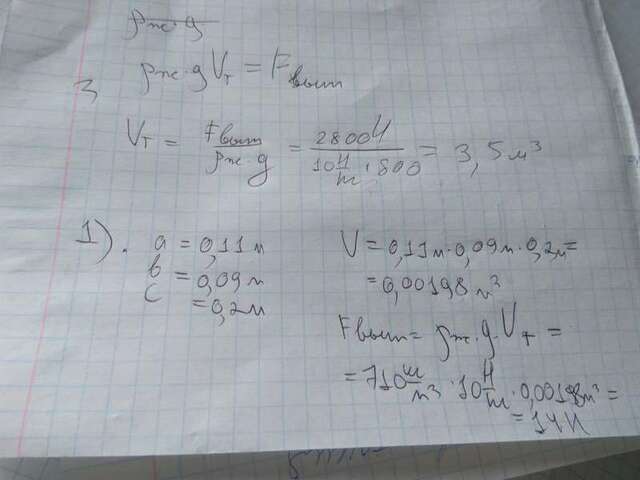 ρж·g
3 ρж·gVт = Fвыт
Vт = Fвыт/ρж·g = 2800Н/10Н/кг·800 = 3,5м³
1). a = 0,11м
b = 0,09м
c = 0,2м
V = 0,11м·0,09м·0,2м =
= 0,00198м³
Fвыт = ρж·g·Vт =
= 710кг/м³·10Н/кг·0,00198м³ =
= 14Н